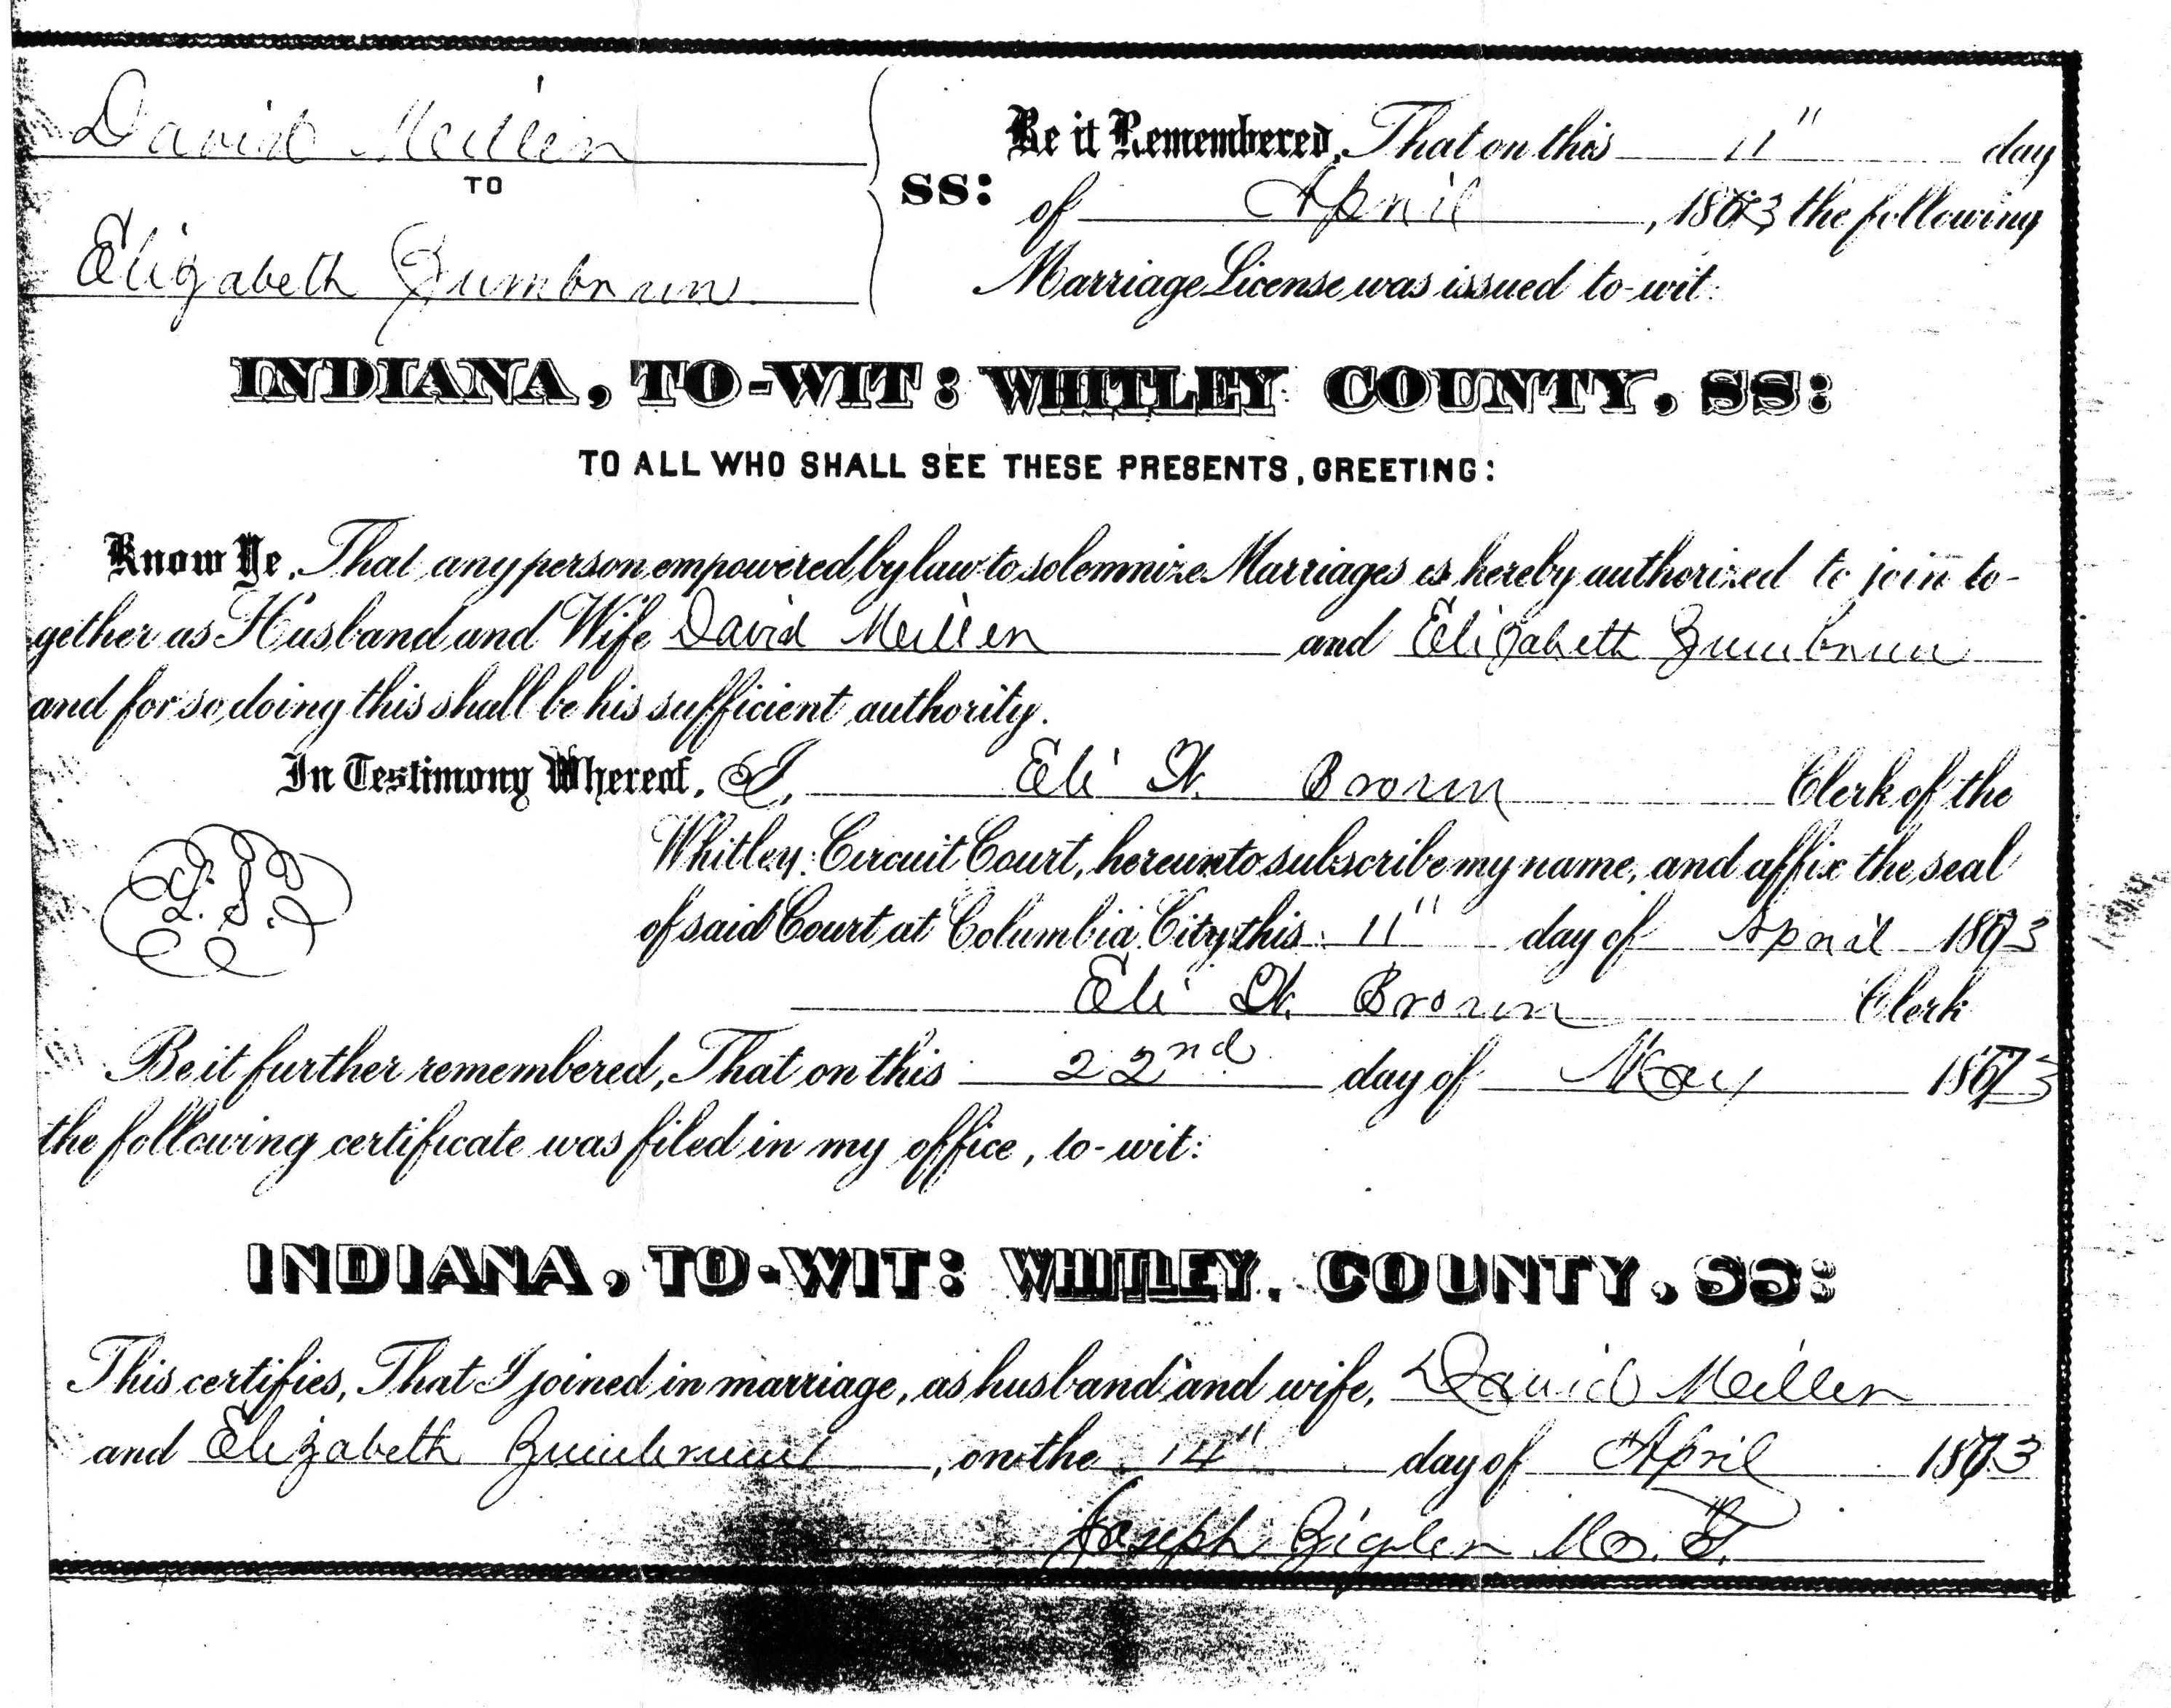 David Meiller
TO
Elizabeth Zumbrun
SS:
Be it Remembered, That on this 11" day
of April, 1873 the following
Marriage License was issued to-wit:
INDIANA, TO-WIT: WHITLEY COUNTY, SS:
TO ALL WHO SHALL SEE THESE PRESENTS, GREETING:
Know Ye, That any person empowered by law to solemnize Marriages is hereby authorized to join to-
gether as Husband and Wife David Meiller and Elizabeth Zumbrun
and for so doing this shall be his sufficient authority.
In Testimony Whereof, I, Eli W. Brown Clerk of the
Whitley Circuit Court, hereunto subscribe my name, and affix the seal
L. S.
of said Court at Columbia City this 11" day of April 1873
Eli W. Brown Clerk
Be it further remembered, That on this 22nd day of May 1873
the following certificate was filed in my office, to-wit:
INDIANA, TO-WIT: WHITLEY COUNTY, SS:
This certifies, That I joined in marriage, as husband and wife, David Meiller
and Elizabeth Zumbrun, on the 14" day of April 1873
Joseph Zigler M. G.